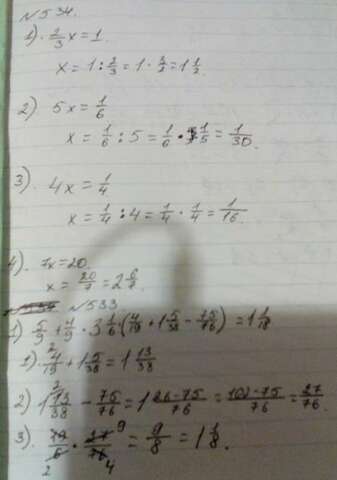 №534.
1). 2/3 x = 1.
x = 1 : 2/3 = 1 · 3/2 = 1 1/2.
2) 5x = 1/6
x = 1/6 : 5 = 1/6 · 1/5 = 1/30.
3). 4x = 1/4
x = 1/4 : 4 = 1/4 · 1/4 = 1/16.
4). 7x = 20.
x = 20/7 = 2 6/7.
№533
1) 5/9 + 4/9 · 3 1/6 · (4/19 + 1 5/38 - 75/76) = 1 1/18
1). 4/19 + 1 5/38 = 1 13/38
2) 1 13/38 - 75/76 = 1 26-75/76 = 102-75/76 = 27/76.
3). 19/6 · 27/76 = 9/8 = 1 1/8.